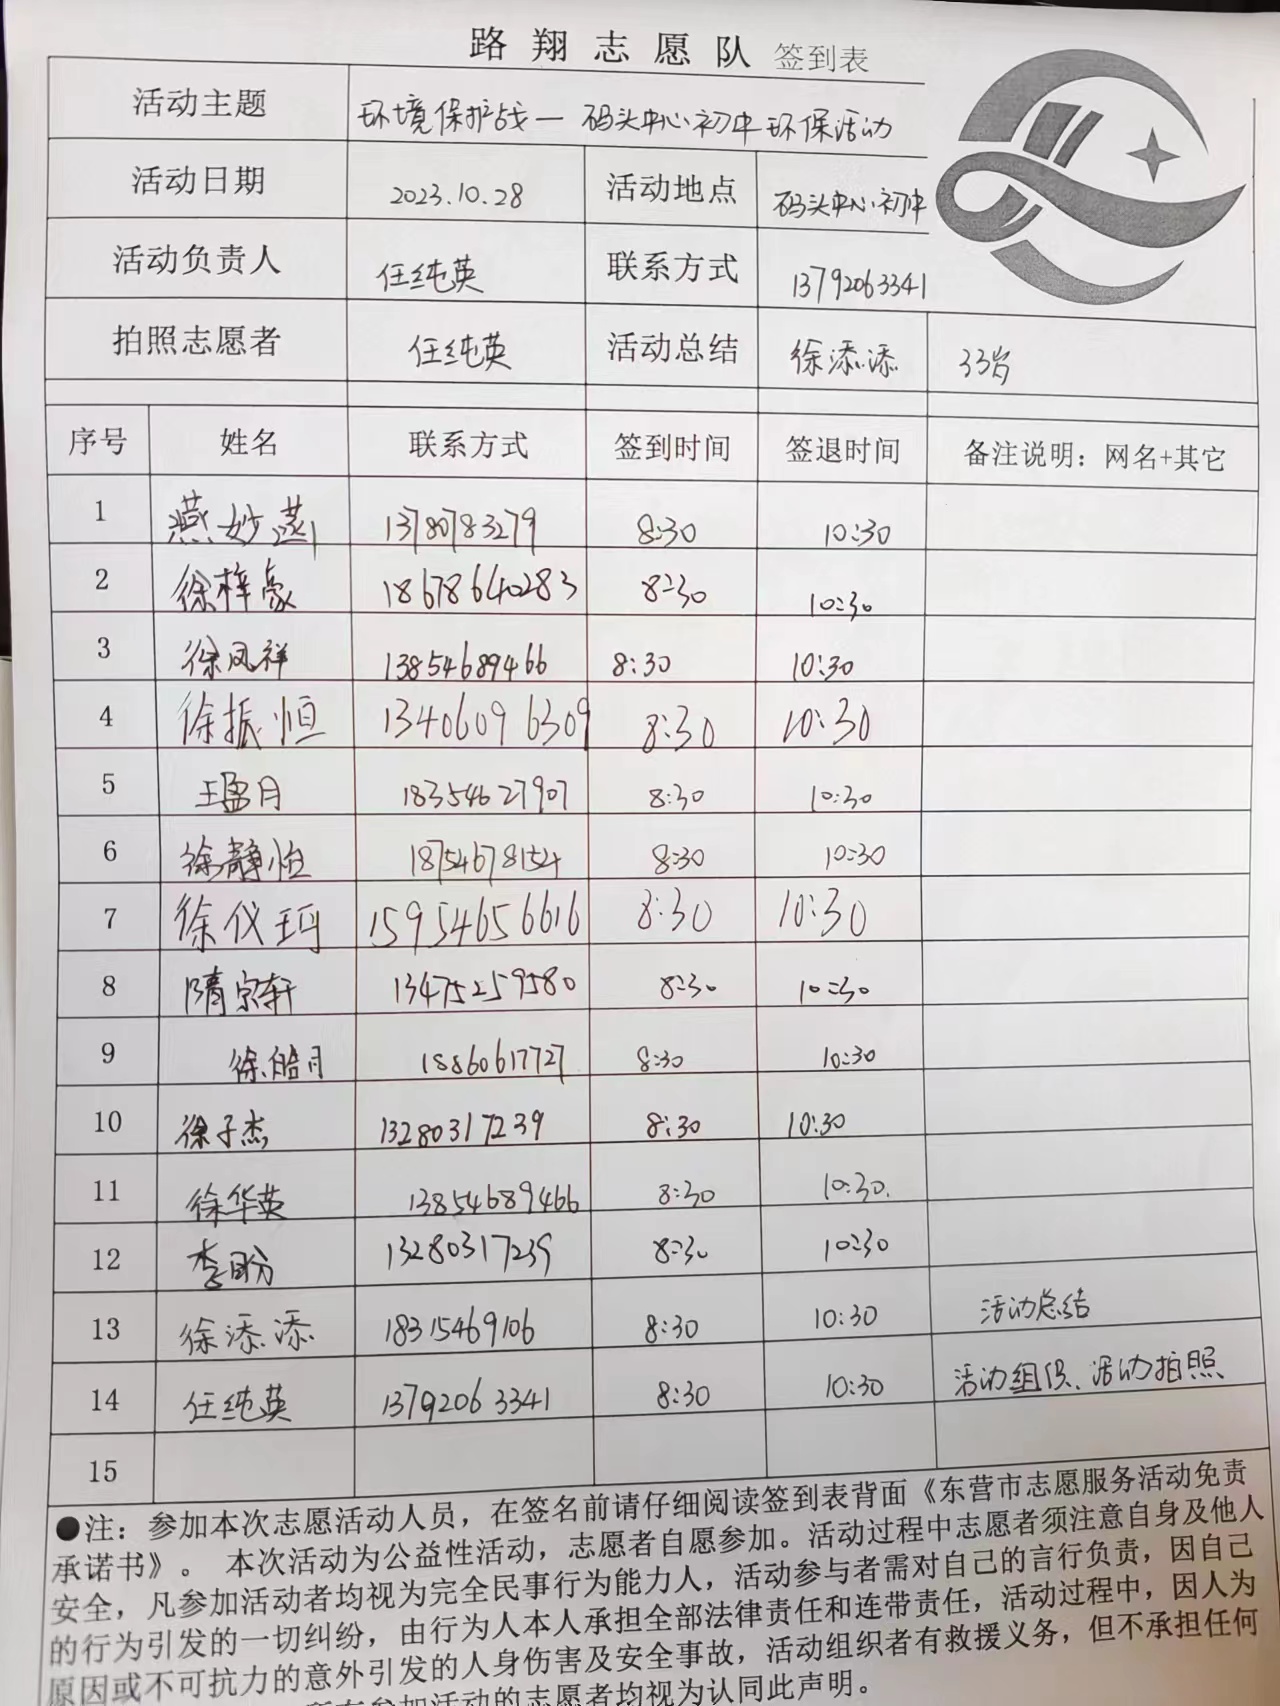 路翔志愿队 签到表
活动主题 环境保护战一 码头中心初中环保活动
活动日期 2023.10.28 活动地点 码头中心初中
活动负责人 任纯英 联系方式 13792063341
拍照志愿者 任纯英 活动总结 徐添添 33岁
序号 姓名 联系方式 签到时间 签退时间 备注说明：网名+其它
1 燕妙 13780783279 8:30 10:30
2 徐梓豪 18678640283 8:30 10:30
3 徐凤祥 13854689466 8:30 10:30
4 徐振恒 13406096309 8:30 10:30
5 王盈月 18354627907 8:30 10:30
6 徐静恒 18754678154 8:30 10:30
7 徐仪珂 15954656616 8:30 10:30
8 隋宗轩 13475259580 8:30 10:30
9 徐皓月 18860617727 8:30 10:30
10 徐子杰 13280317239 8:30 10:30
11 徐华英 13854689466 8:30 10:30.
12 李盼 13280317239 8:30 10:30
13 徐添添 18315469106 8:30 10:30 活动总结
14 任纯英 13792063341 8:30 10:30 活动组织、活动拍照
15
●注：参加本次志愿活动人员，在签名前请仔细阅读签到表背面《东营市志愿服务活动免责
承诺书》。 本次活动为公益性活动，志愿者自愿参加。活动过程中志愿者须注意自身及他人
安全，凡参加活动者均视为完全民事行为能力人，活动参与者需对自己的言行负责，因自己
的行为引发的一切纠纷，由行为人本人承担全部法律责任和连带责任，活动过程中，因人为
原因或不可抗力的意外引发的人身伤害及安全事故，活动组织者有救援义务，但不承担任何
所有参加活动的志愿者均视为认同此声明。